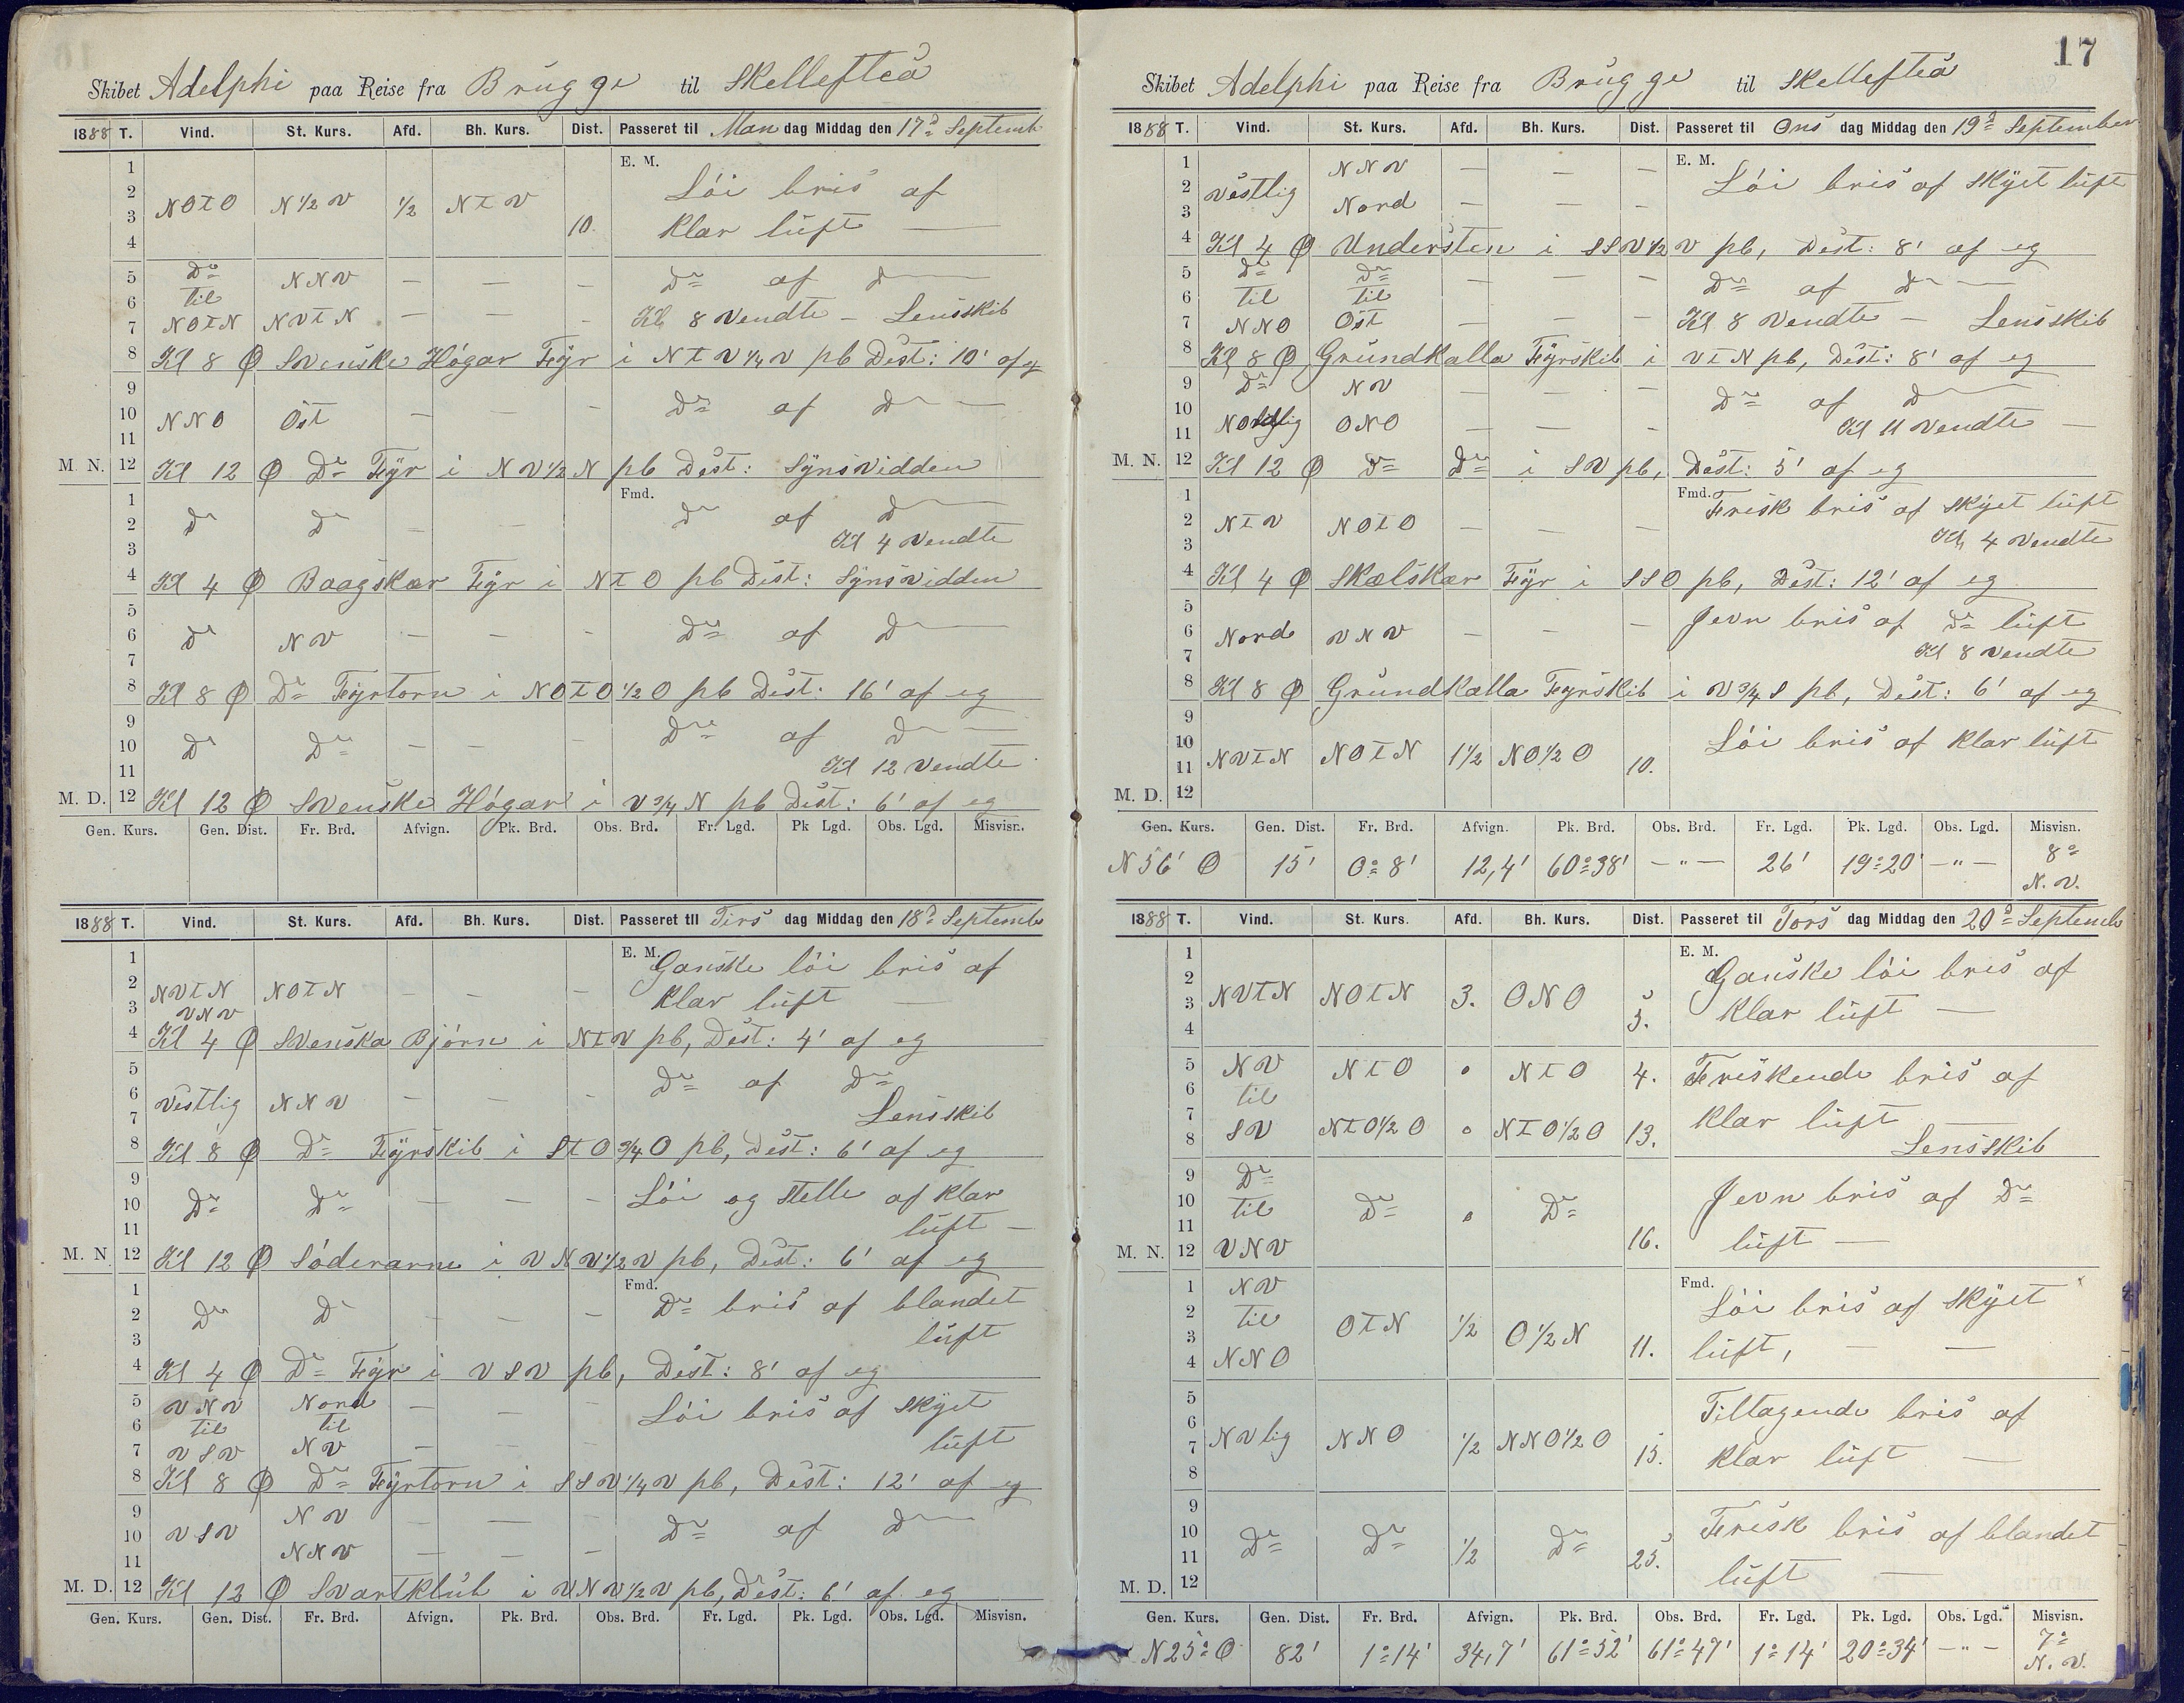 Skibet Adelphi paa Reise fra Brügge til Skellefteå
1888 T. Vind. St. Kurs. Afd. Bh. Kurs. Dist. Passeret til Man dag Middag den 17d Septemb
1 E. M.
2 NOtO N½V ½ NtV Löi bris af
3 10. klar lüft —
4
5 Do NNV — — — Do af D—
6 til
7 NOtN NVtN — — — Kl 8 Vendte – Lensskib
8 Kl 8 Ø Svenske Högar Fÿr i NtV¼V pb Dist: 10' af eg
9
10 NNO Öst — — — Do af D— —
11
M. N. 12 Kl 12 Ø Do Fÿr i NV½N pb Dist: Sÿnsvidden
1 Fmd.
2 Do Do — — Do af D—
3 Kl 4 Vendte
4 Kl 4 Ø Baagskær Fÿr i NtO pb Dist: Sÿnsvidden
5
6 Do NV — — — Do af D—
7
8 Kl 8 Ø Do Fÿrtorn i NOtO½O pb Dist: 16' af eg
9
10 Do Do — — — Do af D— —
11 Kl 12 Vendte
M. D. 12 Kl 12 Ø Svenske Högar i V¾N pb Dist: 6' af eg
Gen. Kurs. Gen. Dist. Fr. Brd. Afvign. Pk. Brd. Obs. Brd. Fr. Lgd. Pk Lgd. Obs. Lgd. Misvisn.
1888 T. Vind. St. Kurs. Afd. Bh. Kurs. Dist. Passeret til Tirs dag Middag den 18d Septemb
1 E. M. Ganske löi bris af
2 NVtN NOtN — — — klar lüft —
3 VNV
4 Kl 4 Ø Svenska Björn i NtV pb, Dist: 4' af eg
5 Do af Do
6 Vestlig NNV — — —
7 Lensskib
8 Kl 8 Ø Do Fÿrskib i StO¾O pb, Dist: 6' af eg
9
10 Do Do — — — Löi og stelle af klar
11 lüft —
M. N. 12 Kl 12 Ø Söderarne i VNV½V pb, Dist: 6' af eg
1 Fmd.
2 Do Do — — — Do bris af blandet
3 lüft
4 Kl 4 Ø Do Fÿr i VSV pb, Dist: 8' af eg
5 VNV Nord — — — Löi bris af skÿet
6 til til
7 VSV NV — — — lüft
8 Kl 8 Ø Do Fÿrtorn i SSV¼V pb, Dist: 12' af eg
9 NV — — —
10 VSV Do af D—
11 NNV — — —
M. D. 12 Kl 12 Ø Svartklüb i VNV½V pb, Dist: 6' af eg
Gen. Kurs. Gen. Dist. Fr. Brd. Afvign. Pk. Brd. Obs. Brd. Fr. Lgd. Pk. Lgd. Obs. Lgd. Misvisn.
17
Skibet Adelphi paa Reise fra Brügge til Skellefteå
1888 T. Vind. St. Kurs. Afd. Bh. Kurs. Dist. Passeret til Ons dag Middag den 19d September
1 NNV — — — E. M.
2 Vestlig Löi bris af skÿet lüft
3 Nord — — —
4 Kl 4 Ø Understen i SSV½V pb, Dist: 8' af eg
5 Do Do — — — Do af D— —
6 til til
7 NNO Öst — — — Kl 8 Vendte – Lensskib
8 Kl 8 Ø Gründkalla Fÿrskib i VtN pb, Dist: 8' af eg
9 Do NV — — — Do af D—
10
11 Nordlig ONO — — — Kl 11 Vendte —
M. N. 12 Kl 12 Ø Do Do i SV pb, Dist: 5' af eg
1 Fmd. Frisk bris af skÿet lüft
2 NtV NOtO — — —
3 Kl 4 Vendte
4 Kl 4 Ø Skælskær Fÿr i SSO pb, Dist: 12' af eg
5 Jevn bris af Do lüft
6 Nord VNV — — —
7 Kl 8 Vendte
8 Kl 8 Ø Gründkalla Fÿrskib i V¾S pb, Dist: 6' af eg
9
10 Löi bris af klar lüft
11 NVtN NOtN 1½ NO½O 10.
M. D. 12
Gen. Kurs. Gen. Dist. Fr. Brd. Afvign. Pk. Brd. Obs. Brd. Fr. Lgd. Pk. Lgd. Obs. Lgd. Misvisn.
N56'O 15' 0°8' 12,4' 60°38' —"— 26' 19°20' —"— 8° N.V.
1888 T. Vind. St. Kurs. Afd. Bh. Kurs. Dist. Passeret til Tors dag Middag den 20d Septemb
1 E. M.
2 Ganske löi bris af
3 NVtN NOtN 3. ONO 5. klar lüft —
4
5 NV NtO 0 NtO 4. Friskende bris af
6 til
7 klar lüft
8 SV NtO½O 0 NtO½O 13. Lensskib
9 Do
10 til Do 0 Do Jevn bris af Do
11
M. N. 12 VNV 16. lüft —
1 NV Fmd. Löi bris af skÿet
2 til
3 OtN ½ O½N 11. lüft, — —
4 NNO
5
6 Tiltagende bris af
7 NVlig NNO ½ NNO½O 15. klar lüft —
8
9
10 Do Do Do Frisk bris af blandet
11 ½ 25. lüft —
M. D. 12
Gen. Kurs. Gen. Dist. Fr. Brd. Afvign. Pk. Brd. Obs. Brd. Fr. Lgd. Pk. Lgd. Obs. Lgd. Misvisn.
N25°O 82' 1°14' 34,7' 61°52' 61°47' 1°14' 20°34' —"— 7° N.V.